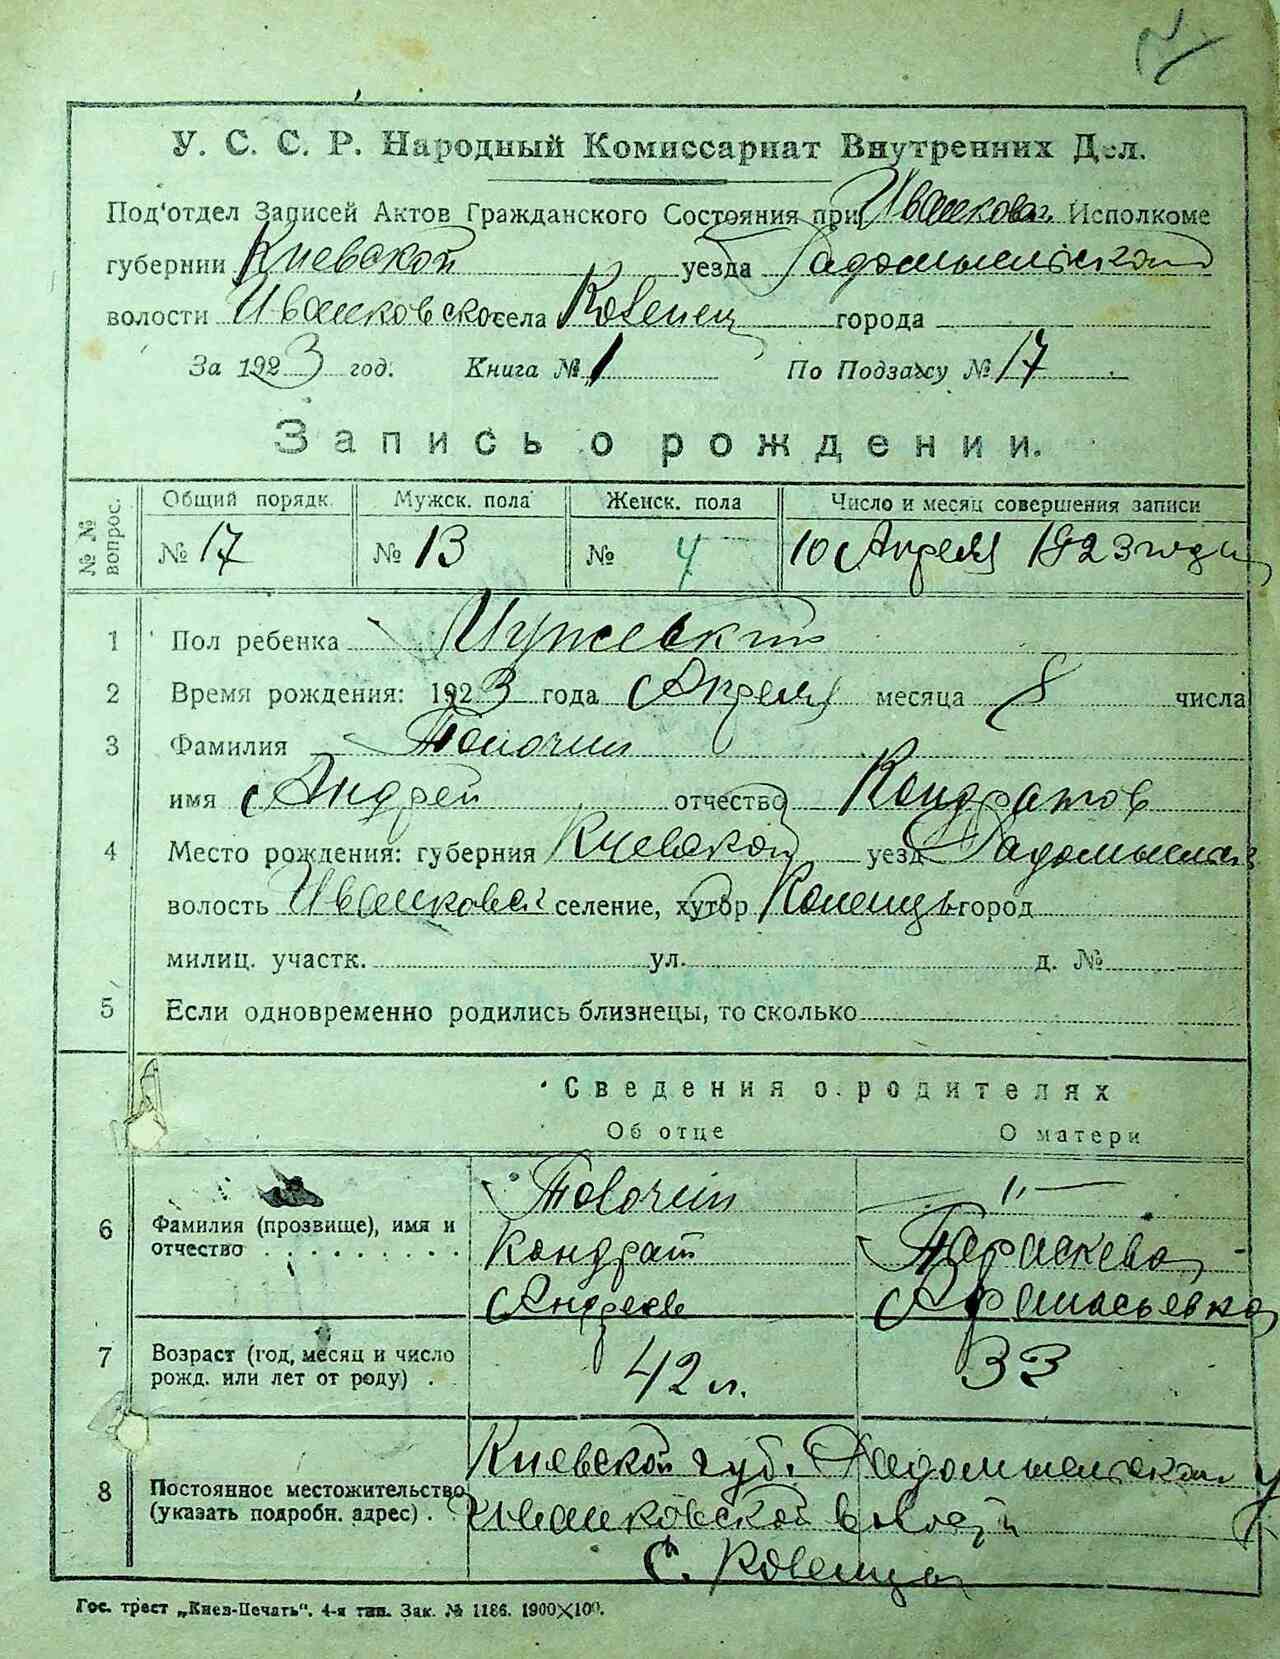 У. С. С. Р. Народный Комиссариат Внутренних Дел.
Под‘отдел Записей Актов Гражданского Состояния при Иванковск. Исполкоме
губернии Киевской уезда Радомысльского
волости Иванковской села города
За 1923 год. Книга № 1 По Подзаgsу № 17
Запись о рождении.
№ № вопрос.
Общий порядк. Мужск. пола Женск. пола Число и месяц совершения записи
№ 17 № 13 № 4 10 Апреля 1923 года
1 Пол ребенка Мужский
2 Время рождения: 1923 года Апреля месяца 8 числа
3 Фамилия Толочин
имя Андрей отчество Кондратов
4 Место рождения: губерния Киевской уезд Радомысльск
волость Иванковск селение, хутор город
милиц. участк. ул. д. №
5 Если одновременно родились близнецы, то сколько
Сведения о родителях
Об отце О матери
6 Фамилия (прозвище), имя и отчество Толочин Кондрат Андреев
Параскева Афанасьевна
7 Возраст (год, месяц и число рожд. или лет от роду) 42 л. 33
8 Постоянное местожительство (указать подробн. адрес)
Киевской губ. Радомысльского у
Иванковской волости
с.
Гос. трест „Киев-Печать“. 4-я тип. Зак. № 1186. 1900×100.